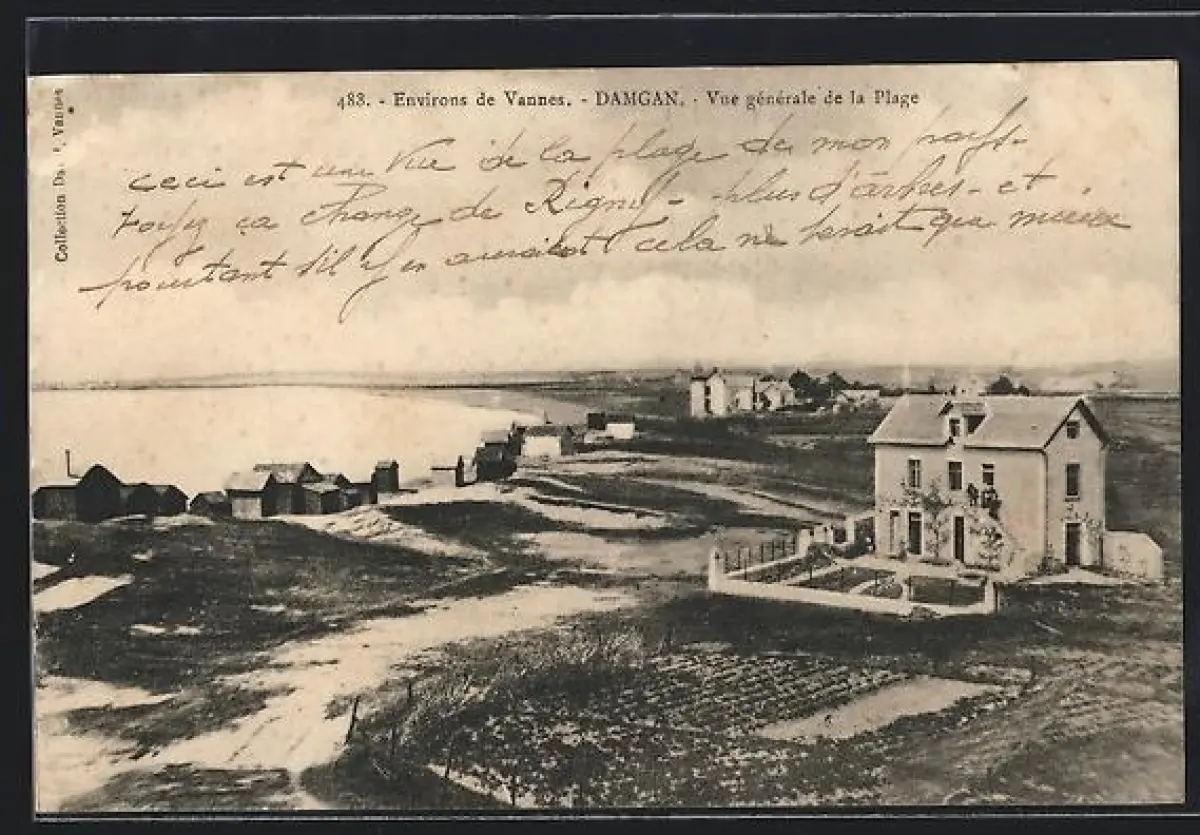 483. - Environs de Vannes. - DAMGAN. - Vue générale de la Plage
Collection Vannes
ceci est une vue de la plage de mon pays-
ça change de - plus d'arbres - et
pourtant s'il y en aurait cela ne serait que mieux